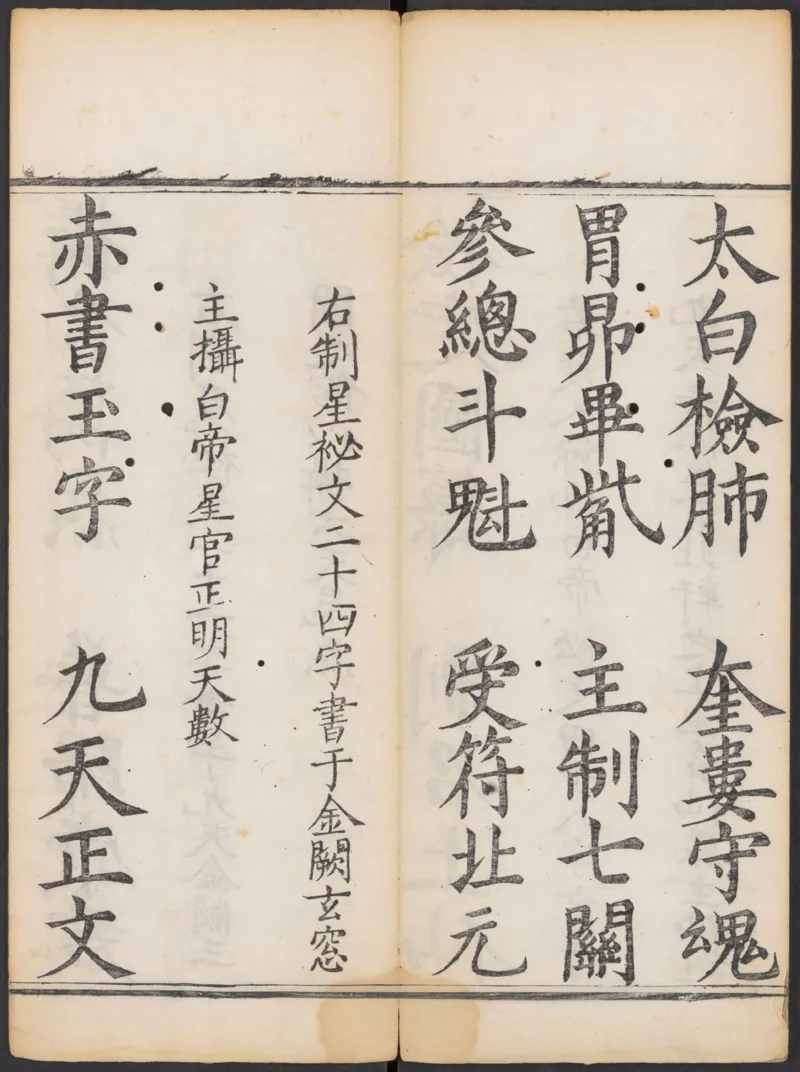 太白檢肺　奎婁守魂
胃昴畢觜　主制七關
參總斗魁　受符北元
右制星祕文二十四字書于金闕玄窓
主攝白帝星官正明天數
赤書玉字　九天正文